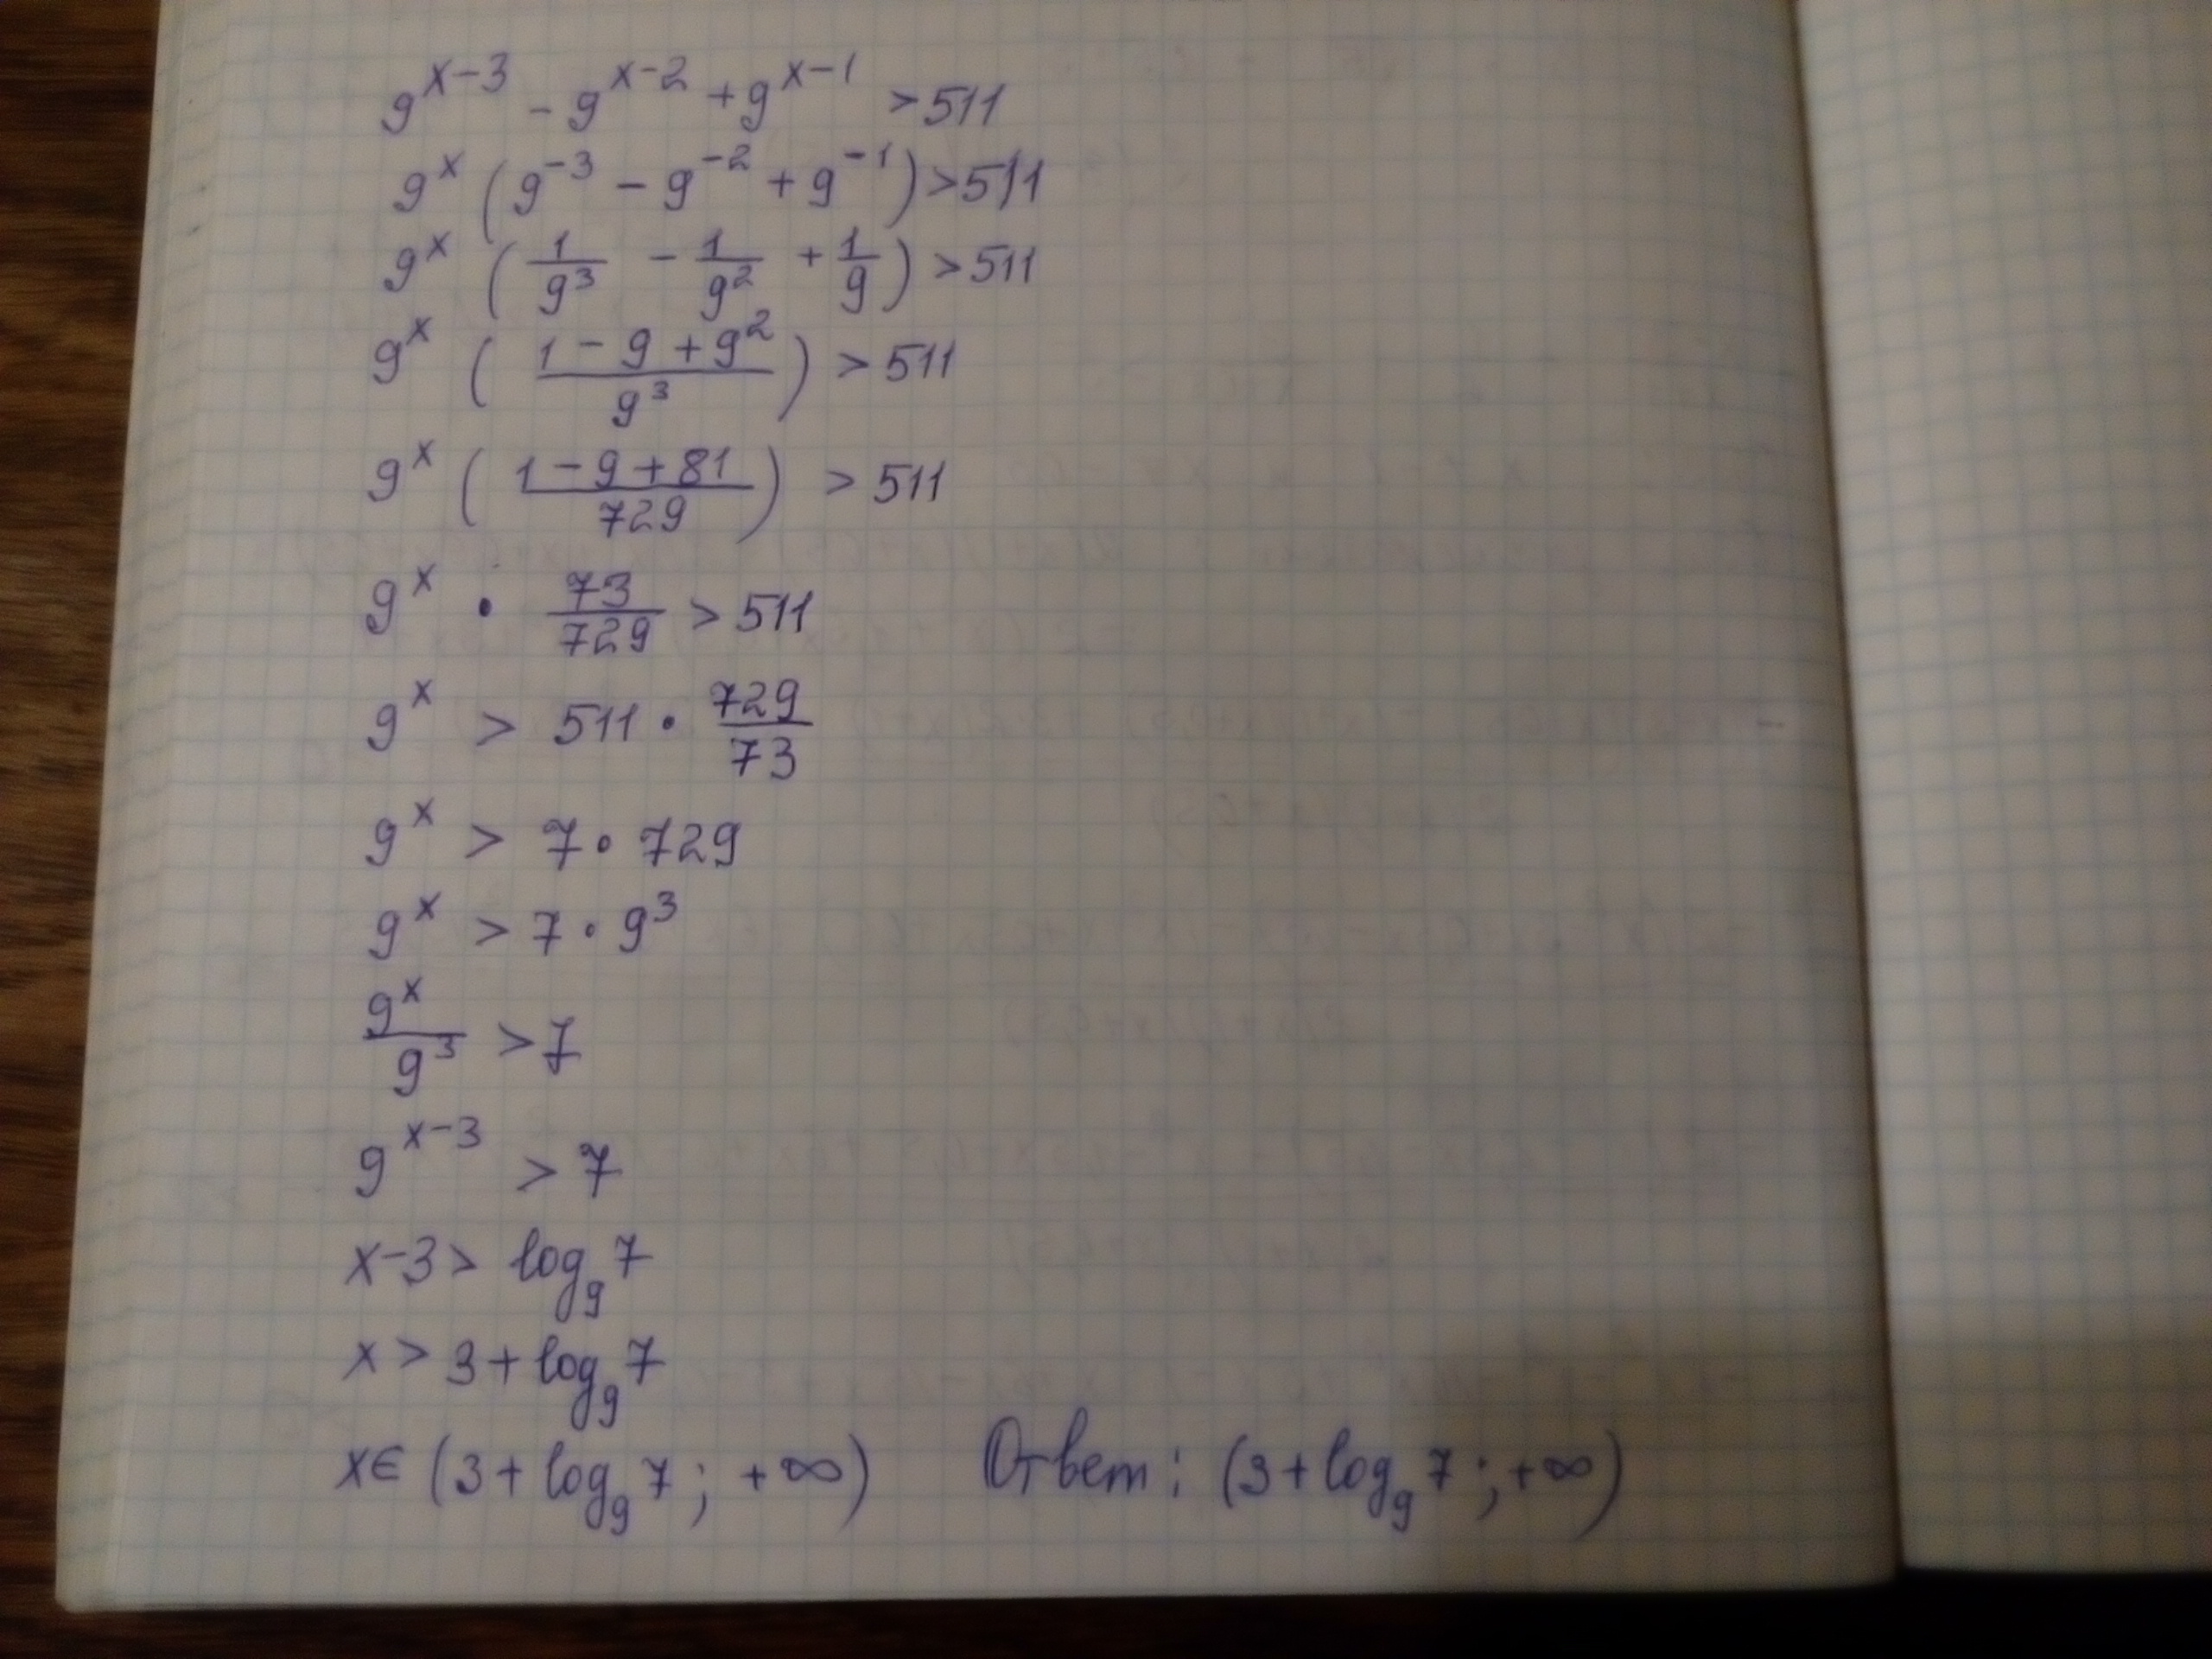 9^{x-3} - 9^{x-2} + 9^{x-1} > 511
9^x (9^{-3} - 9^{-2} + 9^{-1}) > 511
9^x (\frac{1}{9^3} - \frac{1}{9^2} + \frac{1}{9}) > 511
9^x (\frac{1 - 9 + 9^2}{9^3}) > 511
9^x (\frac{1 - 9 + 81}{729}) > 511
9^x · \frac{73}{729} > 511
9^x > 511 · \frac{729}{73}
9^x > 7 · 729
9^x > 7 · 9^3
\frac{9^x}{9^3} > 7
9^{x-3} > 7
x - 3 > log_9 7
x > 3 + log_9 7
x ∈ (3 + log_9 7; +∞) Ответ: (3 + log_9 7; +∞)